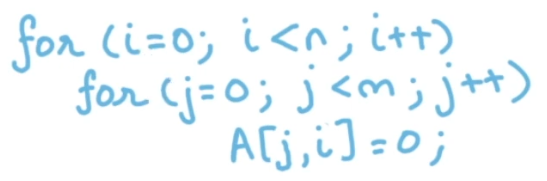 for (i=0; i<n; i++)
for (j=0; j<m; j++)
A[j,i]=0;